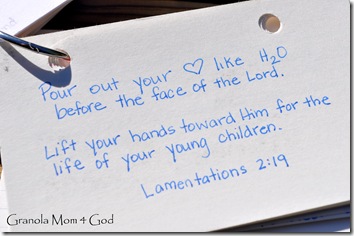 Pour out your ♡ like H₂O
before the face of the Lord.
Lift your hands toward Him for the
life of your young children.
Lamentations 2:19
Granola Mom 4 God